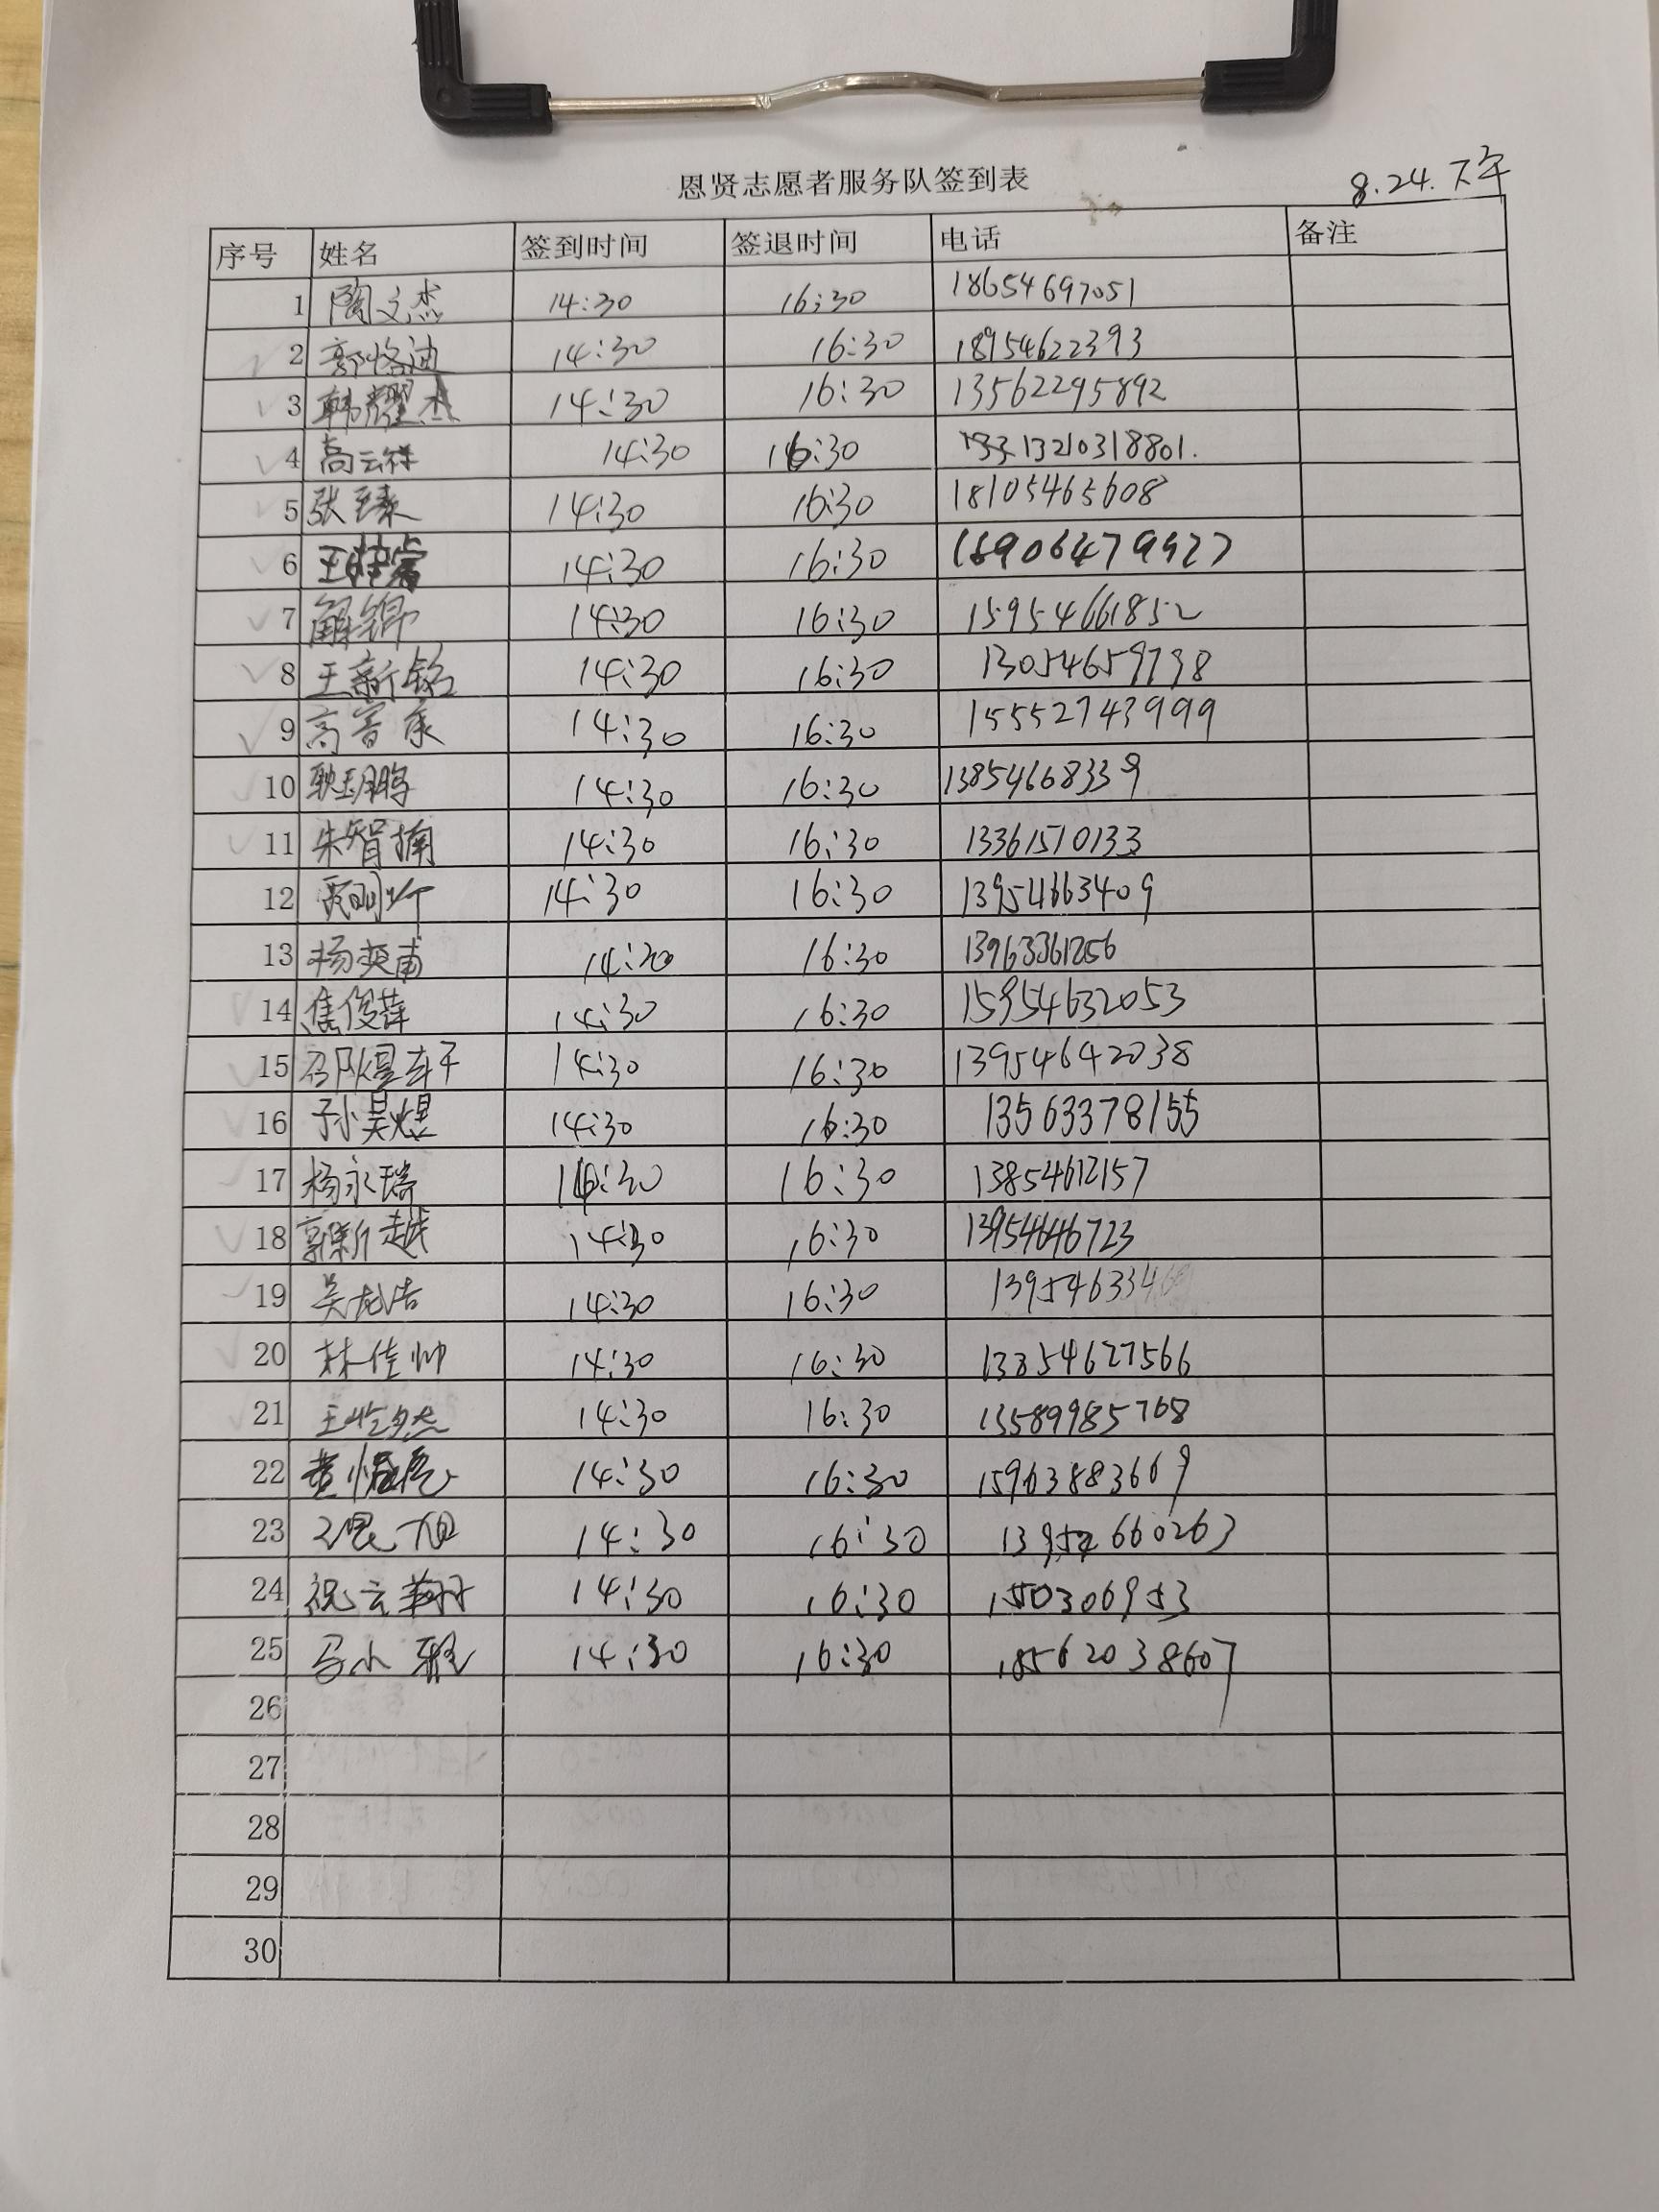 恩贤志愿者服务队签到表
8.24.下午
序号 姓名 签到时间 签退时间 电话 备注
1 陶文杰 14:30 16:30 18654697051
2 郭恪迪 14:30 16:30 18954622393
3 韩耀杰 14:30 16:30 13562295892
4 高云祥 14:30 16:30 13210318801.
5 张至臻 14:30 16:30 18105465608
6 14:30 16:30
7 解锦 14:30 16:30 15954661852
8 王新铭 14:30 16:30 13054659798
9 14:30 16:30 15552743999
10 耿玉鹏 14:30 16:30 13854668339
11 朱智楠 14:30 16:30 13361510133
12 14:30 16:30 13954663409
13 杨奕甫 16:30 13963361256
14 焦俊萍 14:30 16:30 15954632053
15 14:30 16:30 13954642038
16 孙昊煜 14:30 16:30 13563378155
17 杨永瑞 16:30 13854612157
18 郭新越 14:30 16:30 13954646723
19 吴龙浩 14:30 16:30
20 林佳帅 14:30 16:30 13854627566
21 14:30 16:30 13589985768
22 14:30 16:30 15963883669
23 14:30 16:30
24 祝云翔 14:30 16:30
25 马小雅 14:30 16:30 18562038607
26
27
28
29
30